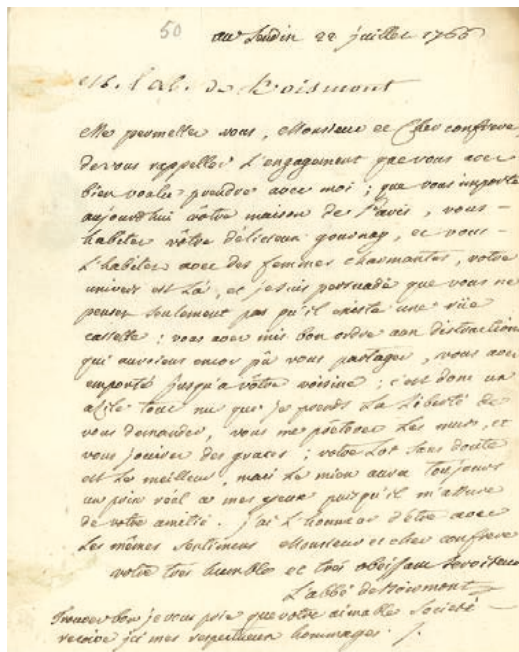 50
au Landin 22 juillet 1766
M. l'ab. de Boismont
Me permettez vous, Monsieur et Cher confrere,
de vous rappeller l'engagement que vous avez
bien voulu prendre avec moi ; que vous importe
aujourdhui vôtre maison de Paris, vous
habitez vôtre délicieux gournay, et vous
l'habitez avec des femmes charmantes, votre
univers est là, et je suis persuadé que vous ne
pensez seulement pas qu'il existe une rüe
cassette ; vous avez mis bon ordre aux distractions
qui auroient encor pû vous partager, vous avez
emporté jusqu'a vôtre voisine ; c'est donc un
azile tout nu que je prends la liberté de
vous demander, vous me preterez les murs, et
vous jouirez des graces ; votre lot sans doute
est le meilleur, mais le mien aura toujours
un prix réel a mes yeux puisqu'il m'assure
de votre amitié. j'ai l'honneur d'être avec
les mêmes sentimens Monsieur et cher confrere
votre tres humble et tres obeissant serviteur
L'abbé de Boismont
Trouvez bon je vous prie que votre aimable societé
recoive ici mes respectueux hommages.